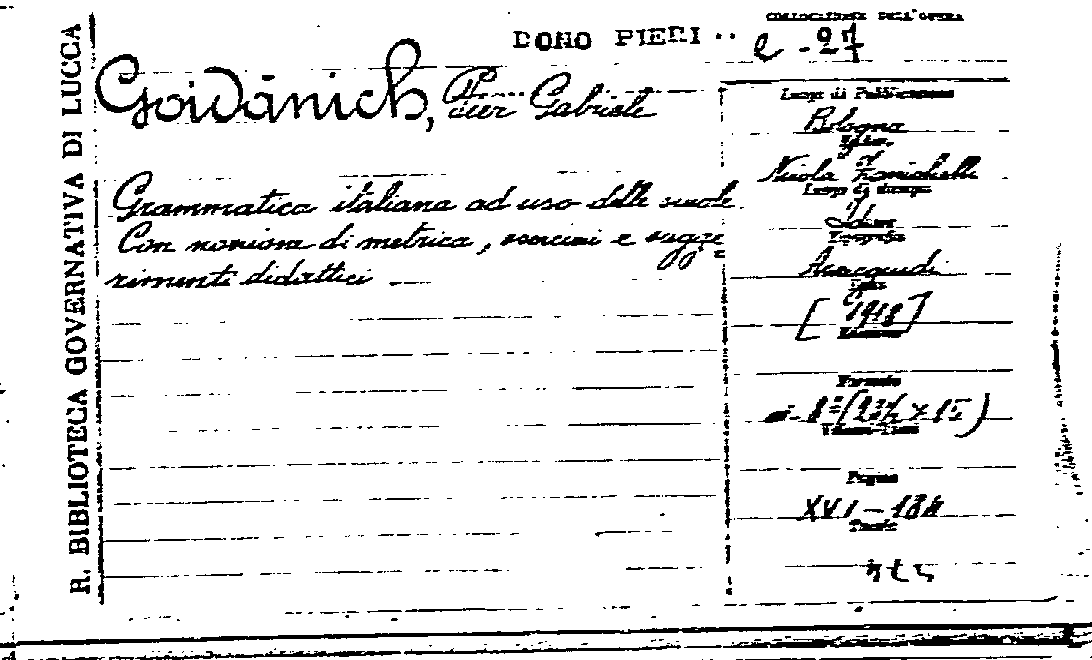 R. BIBLIOTECA GOVERNATIVA DI LUCCA
COLLOCAZIONE DELL'OPERA
DONO PIERI
e - 27
Goidànich, Pier Gabriele
Grammatica italiana ad uso delle scuole.
Con nozioni di metrica, esercizi e sugge=
rimenti didattici
Luogo di Pubblicazione
Bologna
Editore
Nicola Zanichelli
Luogo di stampa
Tipografia
[1918]
Edizione
Formato
Pagine
XVI - 184
Tavole